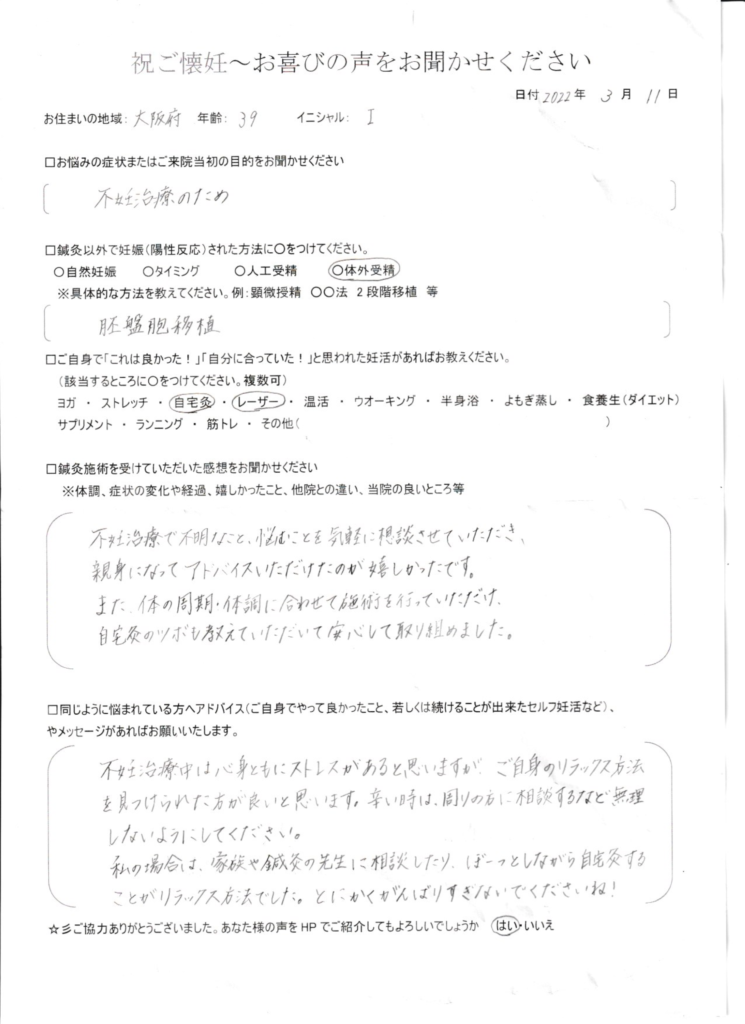 祝ご懐妊～お喜びの声をお聞かせください
日付 2022年 3月 11日
お住まいの地域: 大阪府 年齢: 39 イニシャル: I
□お悩みの症状またはご来院当初の目的をお聞かせください
不妊治療のため
□鍼灸以外で妊娠（陽性反応）された方法に○をつけてください。
○自然妊娠 ○タイミング ○人工受精 ○体外受精
※具体的な方法を教えてください。例：顕微授精 ○○法 2段階移植 等
胚盤胞移植
□ご自身で「これは良かった！」「自分に合っていた！」と思われた妊活があればお教えください。
（該当するところに○をつけてください。複数可）
ヨガ ・ ストレッチ ・ 自宅灸 ・ レーザー ・ 温活 ・ ウオーキング ・ 半身浴 ・ よもぎ蒸し ・ 食養生（ダイエット）
サプリメント ・ ランニング ・ 筋トレ ・ その他（ ）
□鍼灸施術を受けていただいた感想をお聞かせください
※体調、症状の変化や経過、嬉しかったこと、他院との違い、当院の良いところ等
不妊治療で不明なこと、悩むことを気軽に相談させていただき、
親身になってアドバイスいただけたのが嬉しかったです。
また、体の周期・体調に合わせて施術を行っていただけ、
自宅灸のツボも教えていただいて安心して取り組めました。
□同じように悩まれている方へアドバイス（ご自身でやって良かったこと、若しくは続けることが出来たセルフ妊活など）、
やメッセージがあればお願いいたします。
不妊治療中は心身ともにストレスがあると思いますが、ご自身のリラックス方法
を見つけられた方が良いと思います。辛い時は、周りの方に相談するなど無理
しないようにしてください。
私の場合は、家族や鍼灸の先生に相談したり、ぼーっとしながら自宅灸する
ことがリラックス方法でした。とにかくがんばりすぎないでくださいね！
☆彡ご協力ありがとうございました。あなた様の声をHPでご紹介してもよろしいでしょうか はい・いいえ